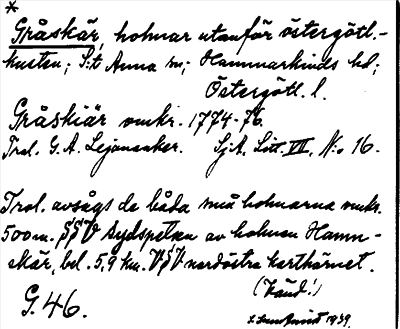 *
Gråskär, holmar utanför östergötl.-
kusten; S:t Anna sn; Hammarkinds hd;
Östergötl. l.
Gråskiär omkr. 1774-76.
Trol. G. A. Lejonanker. SjA. Litt. VII, N:o 16.
Trol. avsågs de båda små holmarna omkr.
500 m. SSV Sydspetsen av holmen Hamn-
skär, bel. 5,9 km. VSV nordöstra karthörnet.
(Känd!)
G. 46.
1939.